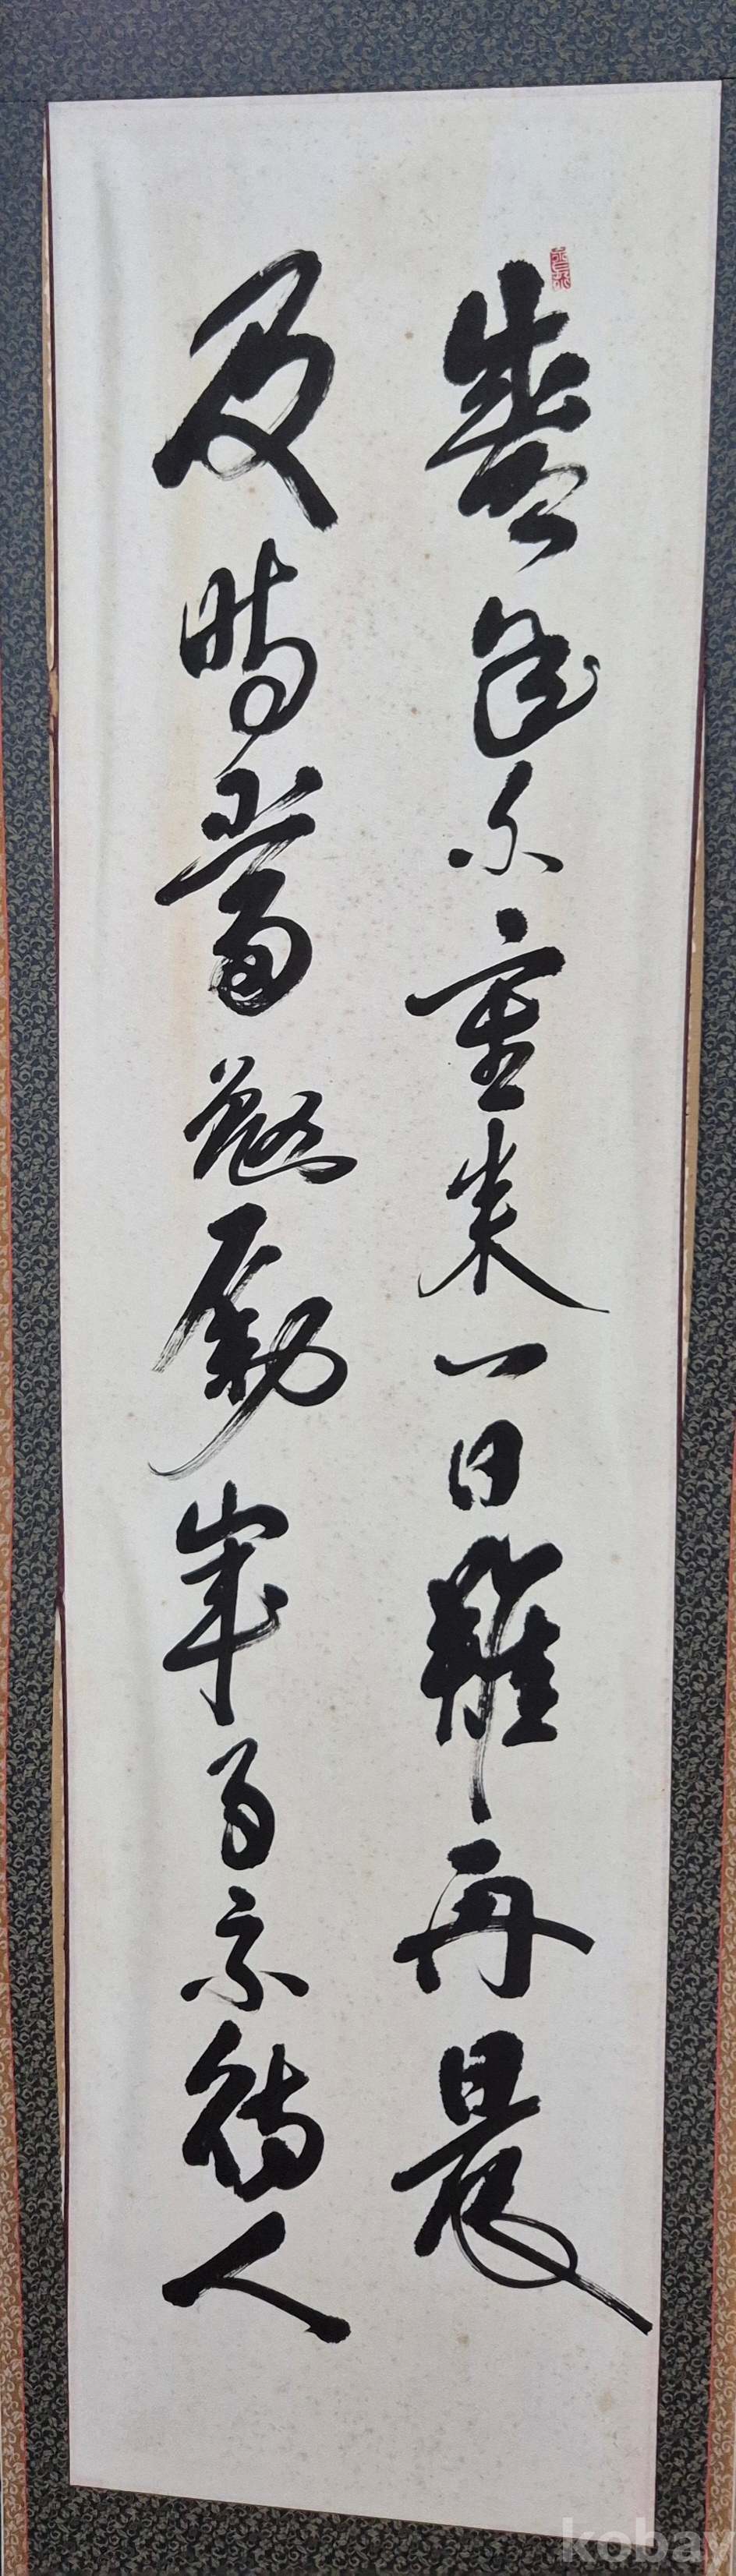 盛年不重来一日難再晨
及時當勉勵歲月不待人
kobay